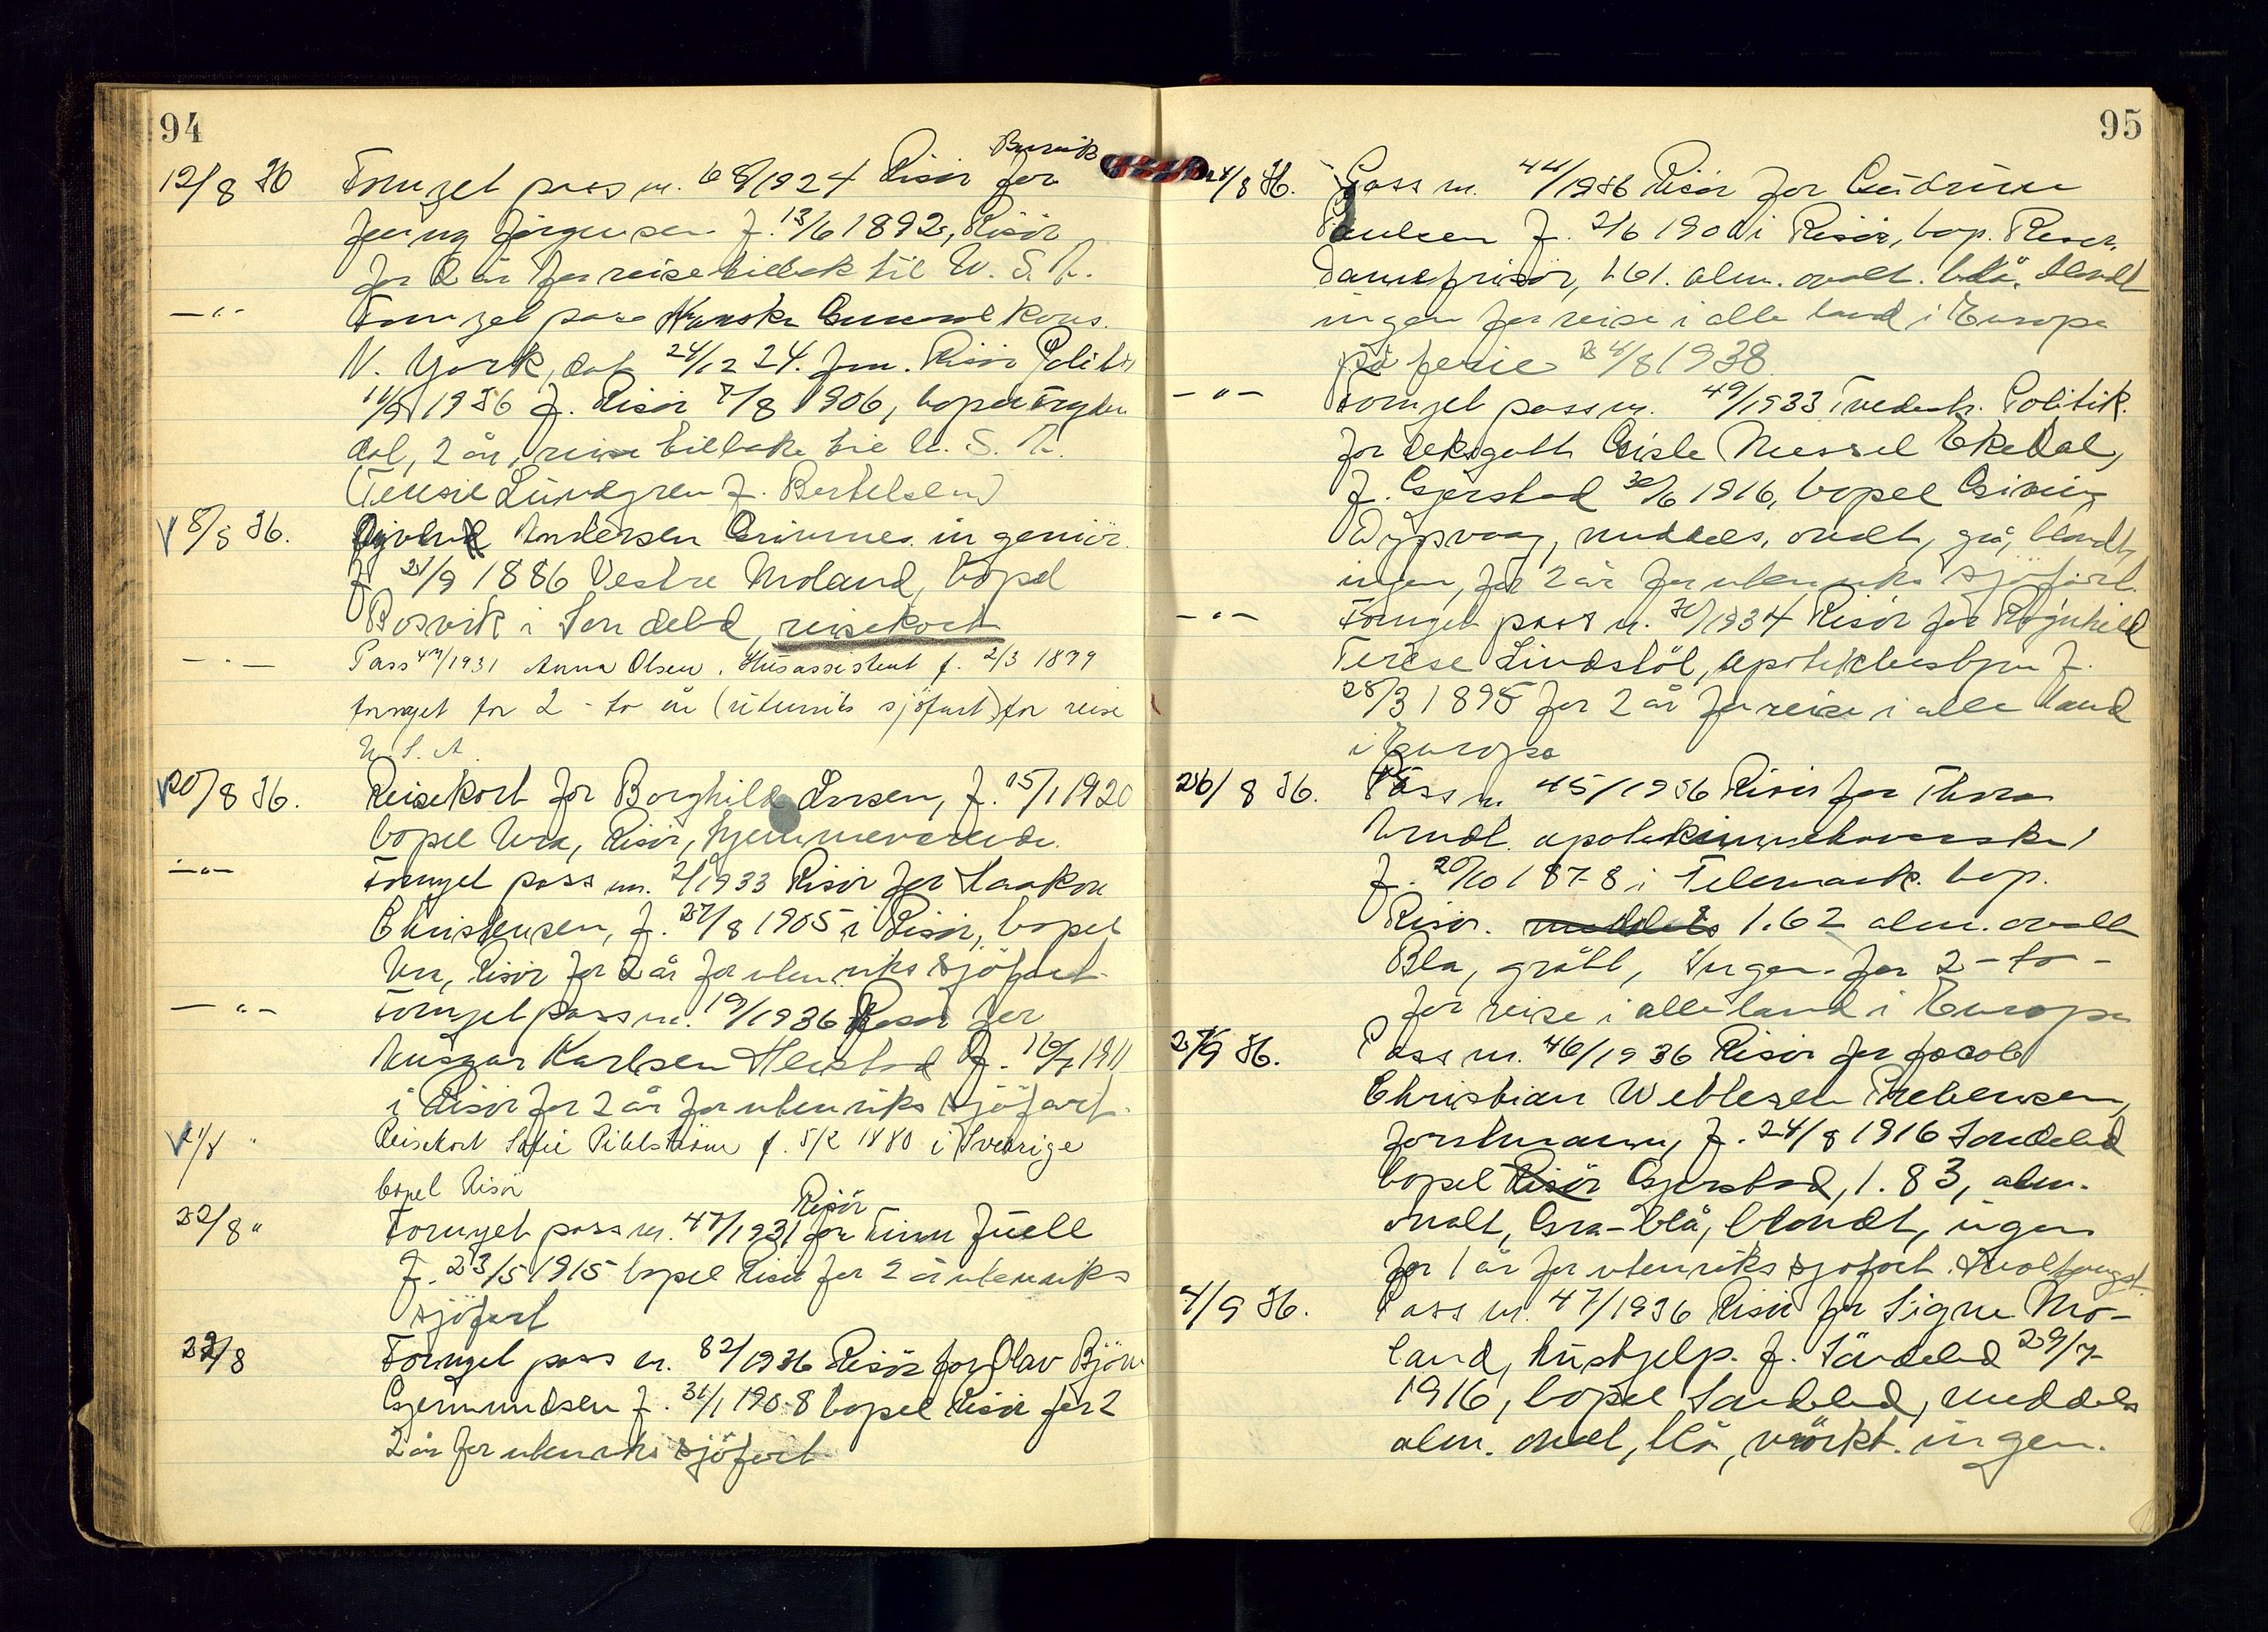 94
12/8 36 Fornyet pass nr. 68/1924 Risør for
Jenny Jörgensen f. 13/6 1892, Risör
for 2 år for reise tilbak til U. S. A.
— " — Fornyet pass Norske General Kons.
N. York, dat 24/12 24. forn. Risør Politik
1936 f. Risör 7/8 1906, bopel
dal, 2 år, reise tilbake til U. S. A.
(Lundgren f. Bertelsen)
V 8/8 36. Andersen Grimnes ingeniør
f 21/9 1886 Vestre Moland, bopel
Bosvik i Søndeled, reisekort
— " — Pass 47/1931 Anna Olsen. Husassistent f. 2/3 1899
fornyet for 2 - to år (utenriks sjöfart) for reise
U. S. A.
V 20/8 36. Reisekort for Borghild Larsen, f. 15/1 1920
bopel Ura, Risör, hjemmeværende.
— " — Fornyet pass nr. 2/1933 Risör for Haakon
Christensen, f. 27/8 1905 i Risör, bopel
Ura, Risör for 2 år for utenriks sjöfart
— " — Fornyet pass nr. 19/1936 Risör for
Ansgar Karlsen Heistad f. 16/7 1911
i Risör for 2 år for utenriks sjöfart.
V 21/8 " Reisekort Sofie Pihlström f. 5/2 1880 i Sverige
bopel Risör
Risör
22/8 " Fornyet pass nr. 47/1931 for Finn Juell
f. 23/5 1915 bopel Risör for 2 år utenriks
sjöfart
22/8 Fornyet pass nr. 82/1936 Risör for Olav Björn
Gjermundsen f. 31/1 1908 bopel Risör for 2
2 år for utenriks sjöfart
95
24/8 36. Pass nr. 44/1936 Risör for Gudrun
Paulsen f. 2/6 1904 i Risör, bop. Risör,
Damefrisör, 1.61. alm. ovalt. blå, blondt
ingen for reise i alle land i Europa
på ferie 4/8 1938
— " — Fornyet pass nr. 49/1933 Tvedestr. Politik.
for deksgutt Gisle Messel Ekedal,
f. Gjerstad 30/6 1916, bopel Giving
Dypvaag, middels, ovalt, grå, blondt,
ingen, for 2 år for utenriks sjöfart.
— " — Fornyet pass nr. 70/1934 Risör for Ragnhild
Terese Lindstöl, apotekbestyrer f.
28/3 1895 for 2 år for reise i alle land
i Europa
26/8 36. Pass nr. 45/1936 Risör for Thora
Arndt apotekinnehaverske,
f. 20/10 1878 i Telemark. bop.
Risör. middels 1.62 alm. ovalt
Blå, grått, Ingen. for 2 - to -
for reise i alle land i Europa
2/9 36. Pass nr. 46/1936 Risör for Jacob
Christian Wetlesen Prebensen,
forstmann, f. 24/8 1916 Søndeled
bopel Risör Gjerstad, 1.83, alm.
ovalt, Grå-blå, blondt, ingen
for 1 år for utenriks sjöfart. Hvalfangst.
4/9 36. Pass nr. 47/1936 Risör for Signe Mo-
land, hushjelp. f. Söndeled 29/7
1916, bopel Søndeled, middels
alm. ovalt, blå, mörkt. ingen.